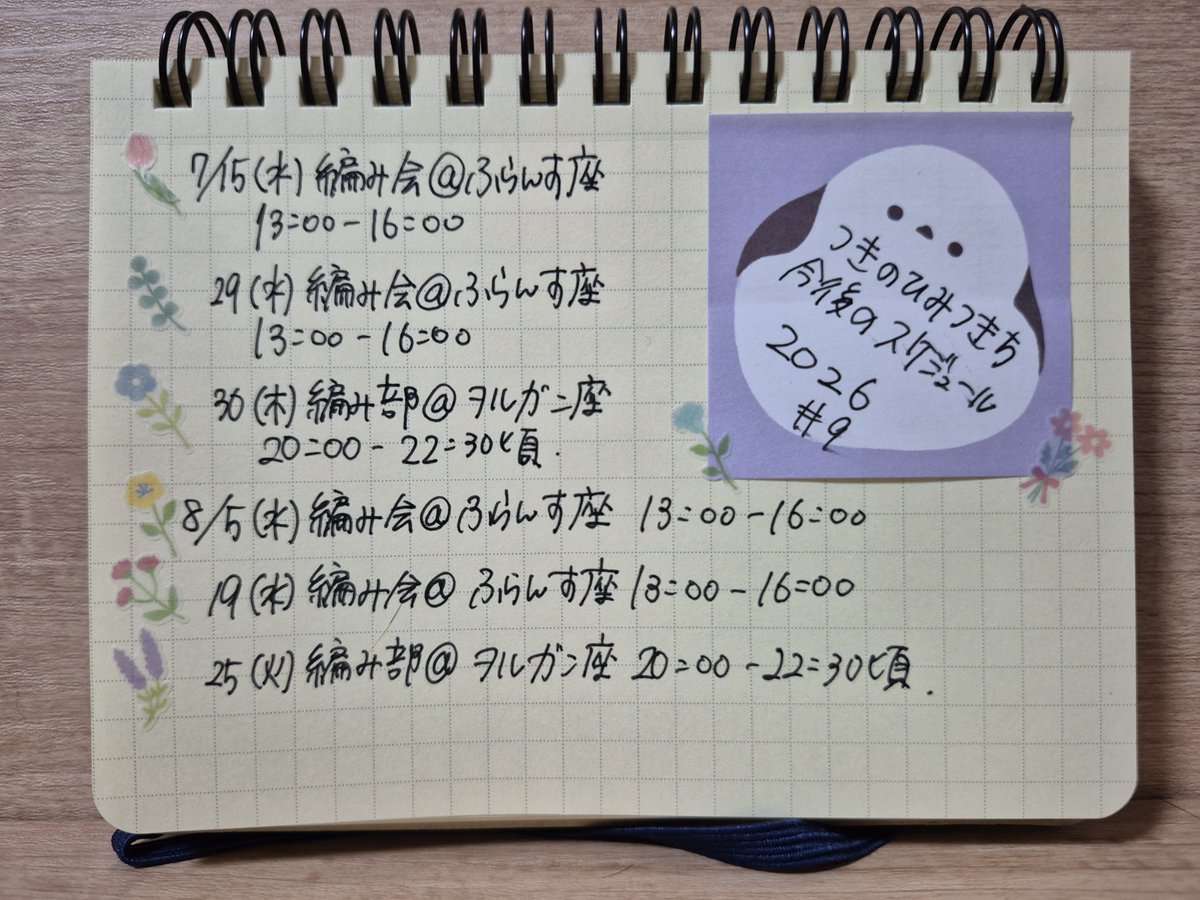 7/15(水) 編み会@ふらんす座
13=00-16=00
29(水) 編み会@ふらんす座
13=00-16=00
30(木) 編み部@ヲルガン座
20=00-22=30頃.
8/5(水) 編み会@ふらんす座 13=00-16=00
19(水) 編み会@ふらんす座 13=00-16=00
25(火) 編み部@ヲルガン座 20=00-22=30頃.
つきのひみつきち
今後のスケジュール
2026
#9